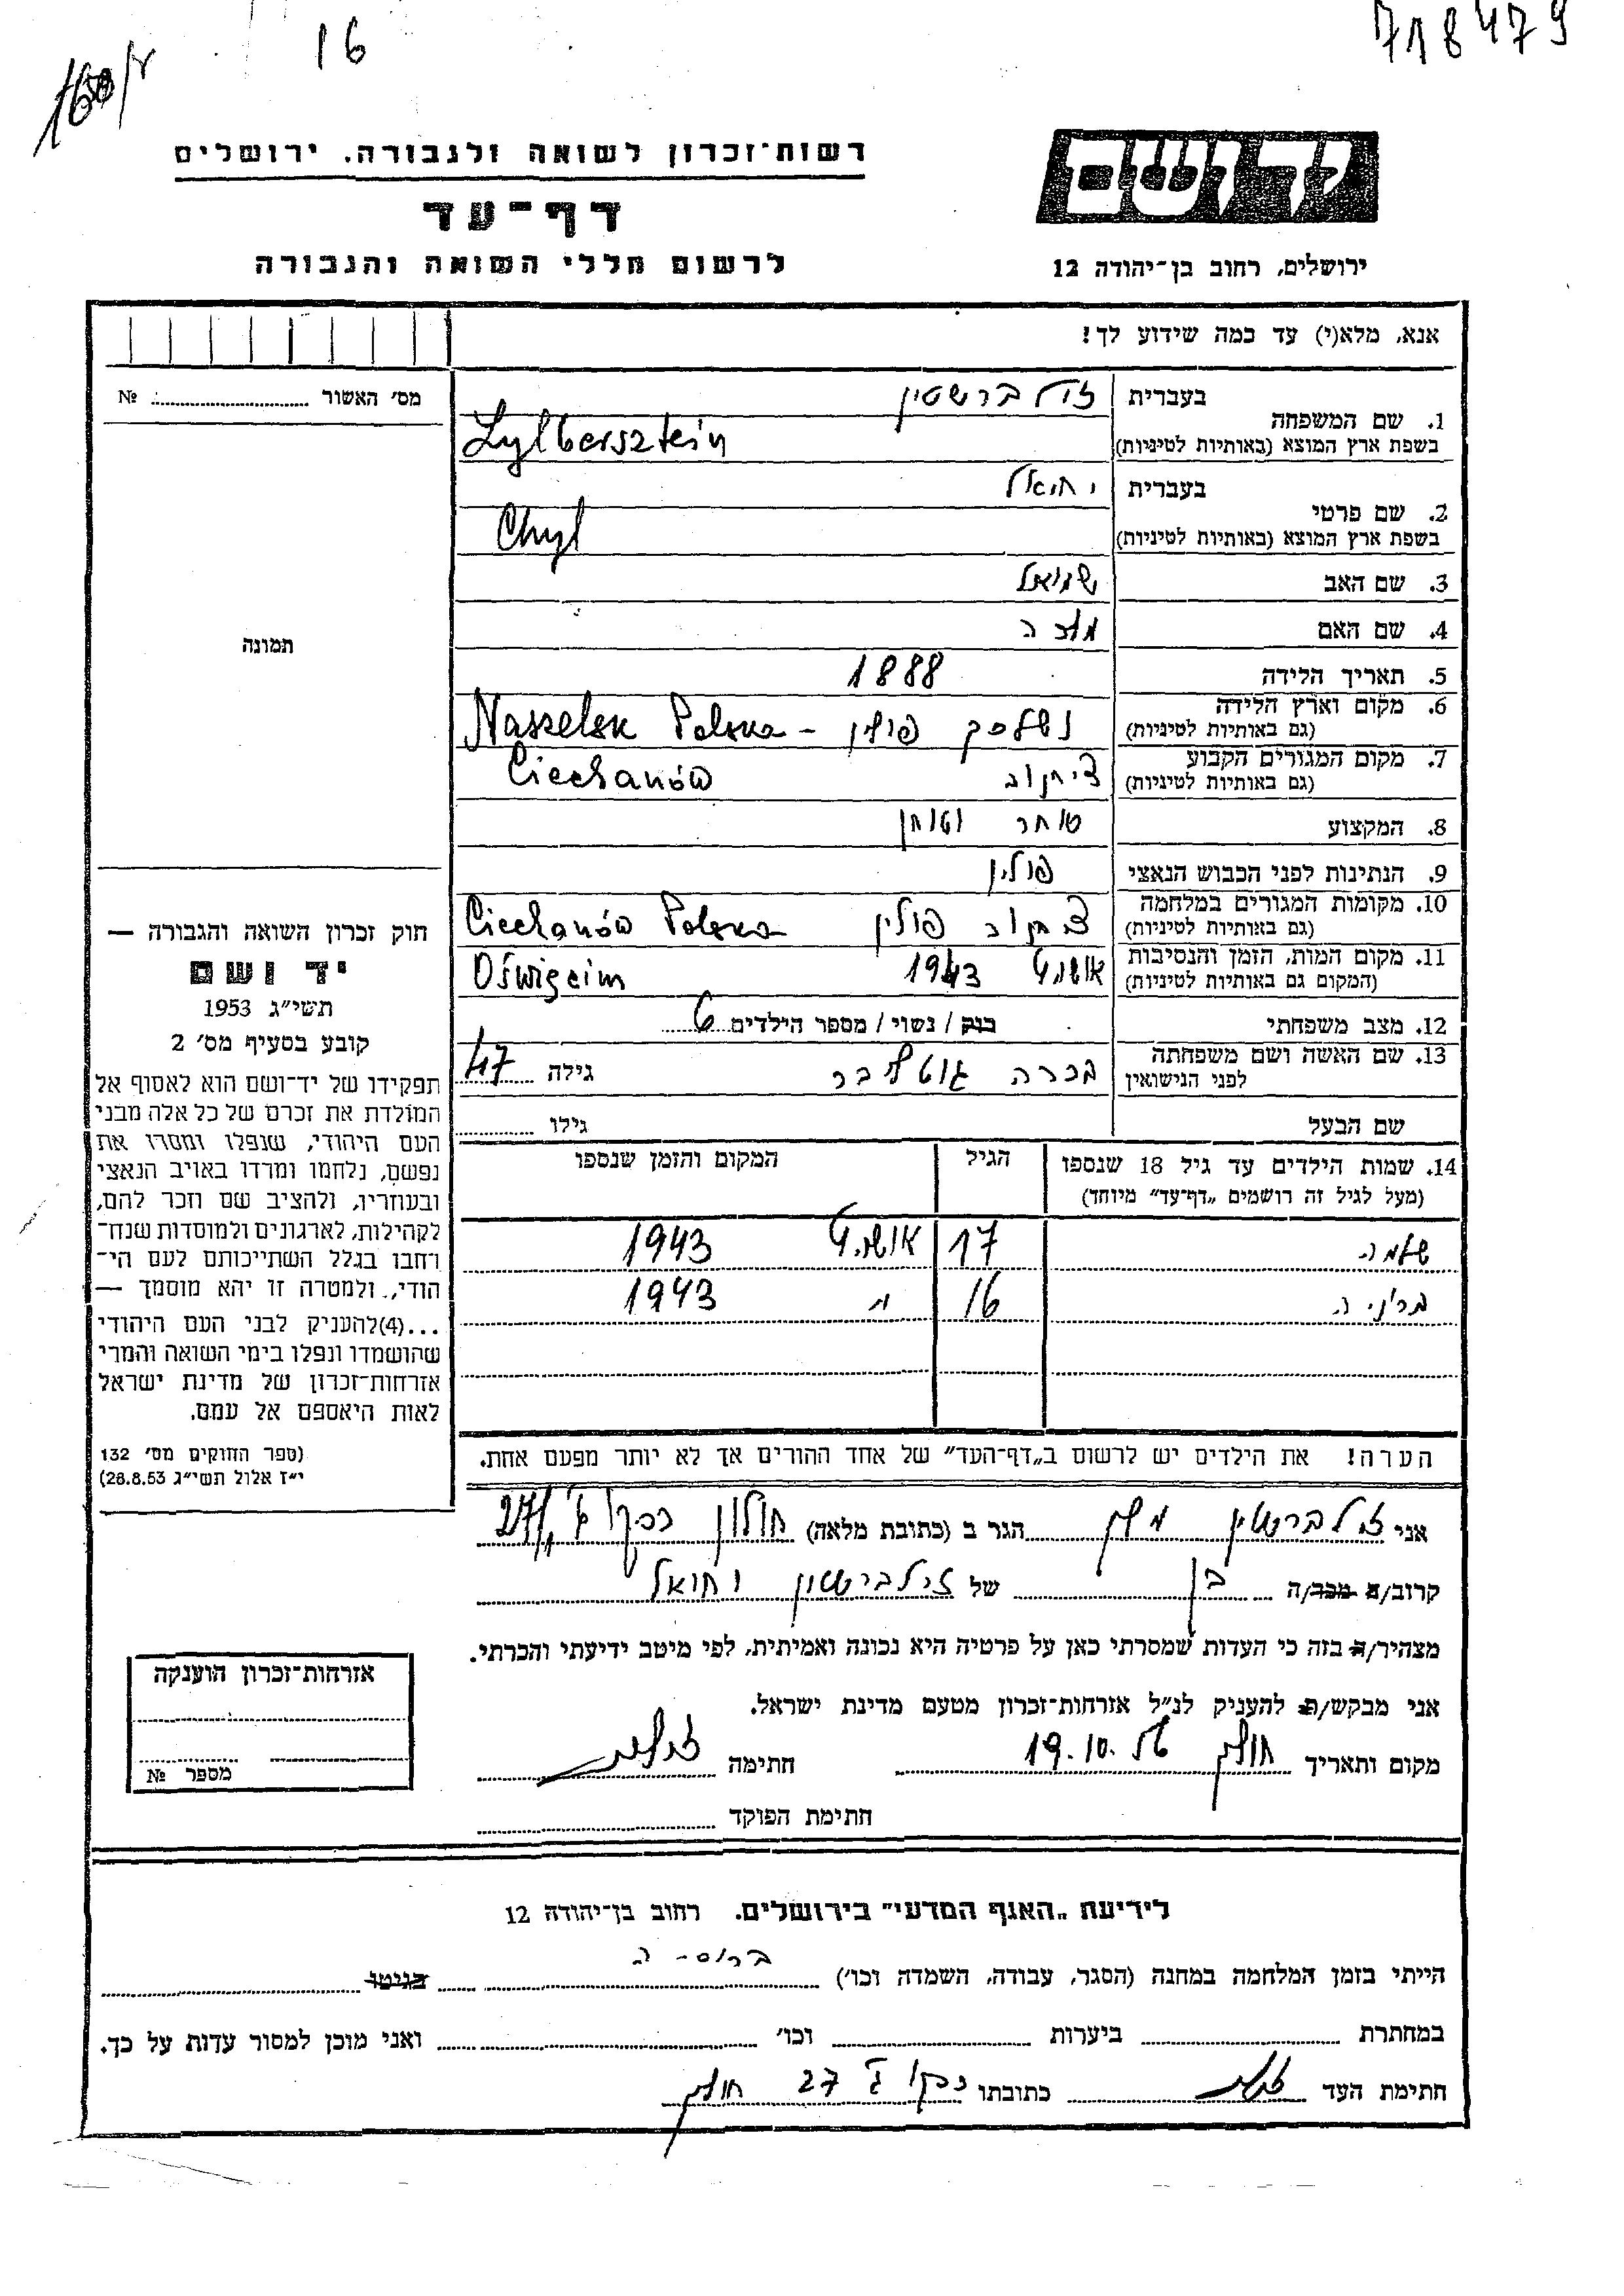 16
718479
רשות־זכרון לשואה ולגבורה. ירושלים
דף־עד
לרשום חללי השואה והגבורה
יד ושם
ירושלים, רחוב בן־יהודה 12
אנא, מלא(י) עד כמה שידוע לך!
מס׳ האשור № 
1. שם המשפחה
בעברית זילברשטיין
בשפת ארץ המוצא (באותיות לטיניות) Zylbersztein
2. שם פרטי
בעברית יחיאל
בשפת ארץ המוצא (באותיות לטיניות) Chyl
3. שם האב שמואל
4. שם האם
5. תאריך הלידה 1888
6. מקום וארץ הלידה
(גם באותיות לטיניות) נשלסק פולין - Nasselsk Polska
7. מקום המגורים הקבוע
(גם באותיות לטיניות) ציחנוב Ciechanów
8. המקצוע סוחר וטוחן
9. הנתינות לפני הכבוש הנאצי פולין
10. מקומות המגורים במלחמה
(גם באותיות לטיניות) ציחנוב פולין Ciechanów Polska
11. מקום המות, הזמן והנסיבות
(המקום גם באותיות לטיניות) אושויץ 1943 Oświęcim
12. מצב משפחתי רווק / נשוי / מספר הילדים 6
13. שם האשה ושם משפחתה
לפני הנישואין גוטליבר גילה 47
שם הבעל גילו
תמונה
חוק זכרון השואה והגבורה —
יד ושם
תשי״ג 1953
קובע בסעיף מס׳ 2
תפקידו של יד־ושם הוא לאסוף אל
המולדת את זכרם של כל אלה מבני
העם היהודי, שנפלו ומסרו את
נפשם, נלחמו ומרדו באויב הנאצי
ובעוזריו, ולהציב שם וזכר להם,
לקהילות, לארגונים ולמוסדות שנח־
רחבו בגלל השתייכותם לעם הי־
הודי, ולמטרה זו יהא מוסמך —
...(4) להעניק לבני העם היהודי
שהושמדו ונפלו בימי השואה והמרי
אזרחות־זכרון של מדינת ישראל
לאות היאספם אל עמם.
(ספר החוקים מס׳ 132
י״ז אלול תשי״ג 28.8.53)
14. שמות הילדים עד גיל 18 שנספו
(מעל לגיל זה רושמים „דף־עד״ מיוחד)
הגיל
המקום והזמן שנספו
שלמה 17 אושויץ 1943
16 " 1943
הערה! את הילדים יש לרשום ב„דף־העד״ של אחד ההורים אך לא יותר מפעם אחת.
אני זילברשטיין הגר ב (כתובת מלאה) חולון 27
קרוב/ה מכר/ה בן של זילברשטיין יחיאל
מצהיר/ה בזה כי העדות שמסרתי כאן על פרטיה היא נכונה ואמיתית, לפי מיטב ידיעתי והכרתי.
אני מבקש/ת להעניק לנ״ל אזרחות־זכרון מטעם מדינת ישראל.
מקום ותאריך חולון 19.10.56 חתימה
חתימת הפוקד
אזרחות־זכרון הוענקה
מספר №
לידיעת „האגף המדעי״ בירושלים. רחוב בן־יהודה 12
הייתי בזמן המלחמה במחנה (הסגר, עבודה, השמדה וכו׳) ברוסיה בגיטו
במחתרת ביערות וכו׳ ואני מוכן למסור עדות על כך.
חתימת העד כתובתו 27 חולון